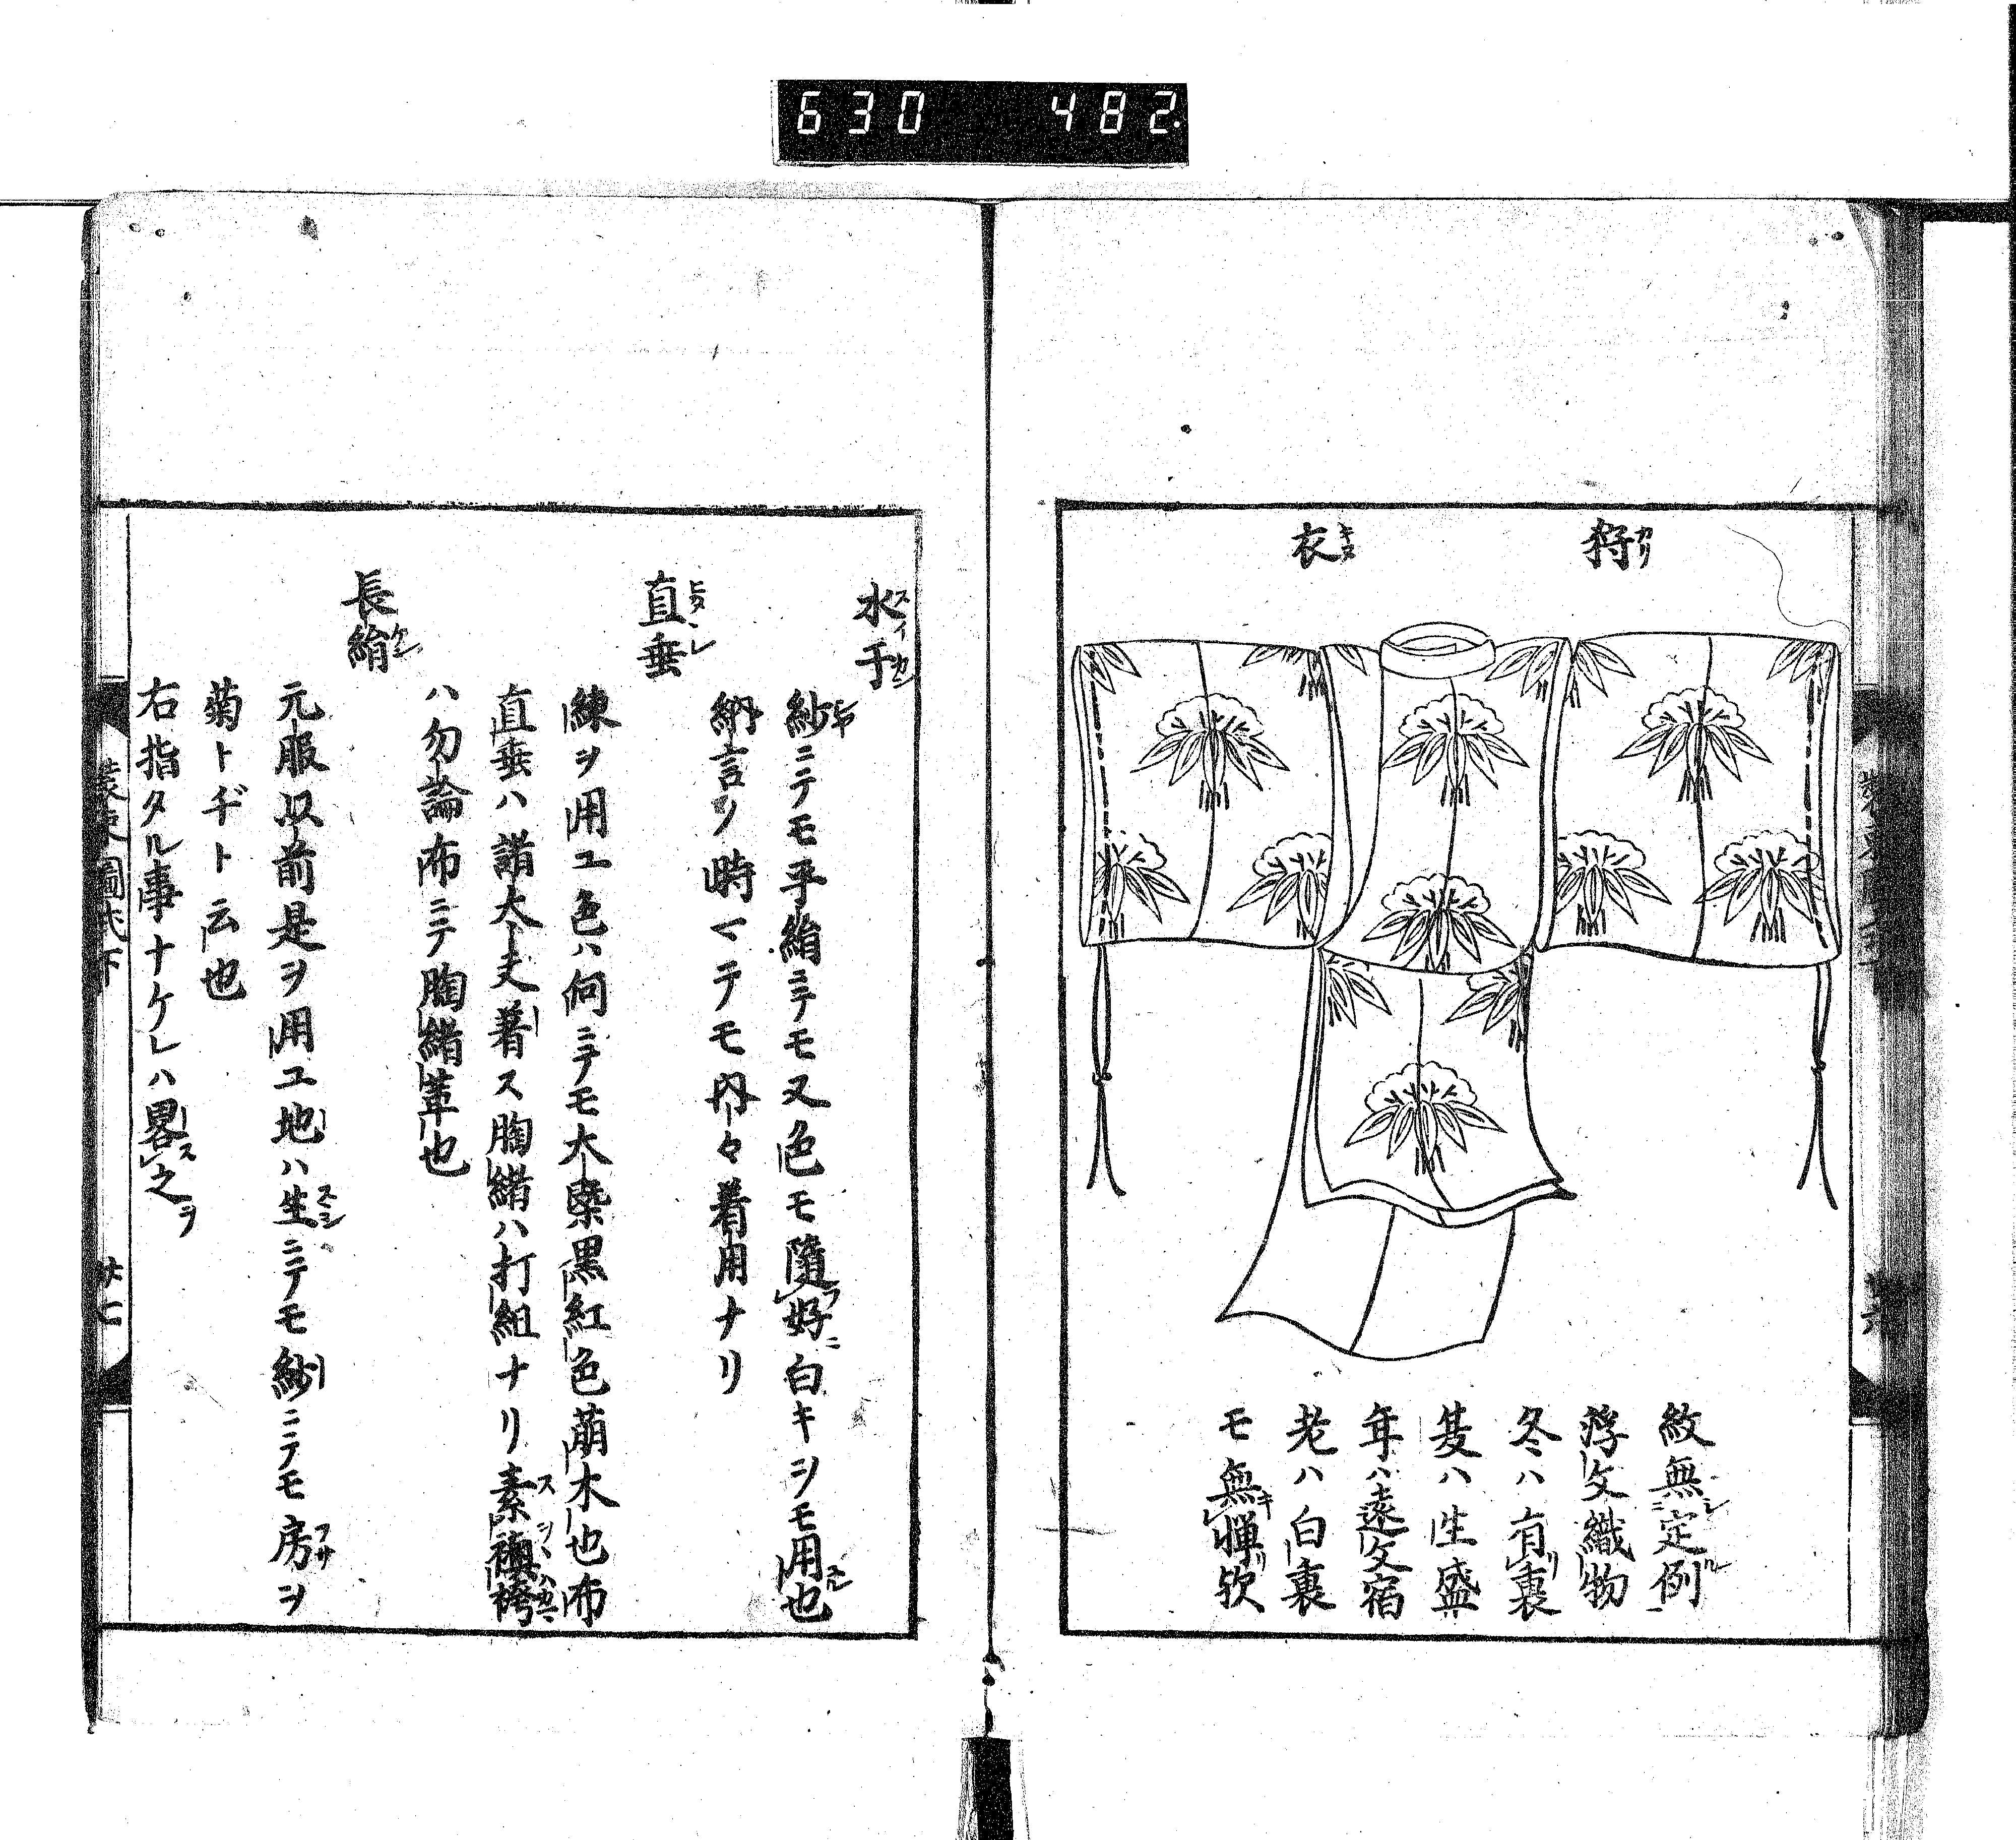 630 482.
狩衣
紋無定例
浮文織物
冬ハ有裏
夏ハ生盛
年ハ遠文宿
老ハ白裏
モ無憚歟
水干
紗ニテモ平絹ニテモ又色モ隨好白キヲモ用也
納言ノ時マテモ内々着用ナリ
直垂
練ヲ用ユ色ハ何ニテモ大染黒紅色萠木也布
直垂ハ諸大夫着ス胸緒ハ打組ナリ素襖袴
ハ勿論布ニテ胸緒革也
長絹
元服以前是ヲ用ユ地ハ生ニテモ紗ニテモ房ヲ
菊トヂト云也
右指タル事ナケレハ畧之
裝束圖式下
廿七